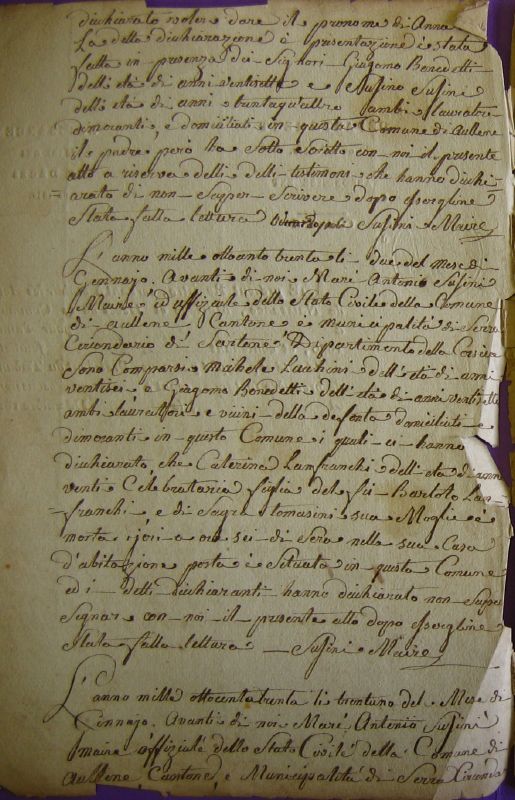 dichiarato voler dare il pronome di Anna
La detta dichiarazione è presentazione è stata
fatta in presenza dei Sighori Giagomo Benedetti
dell'età di anni ventisette e Susini
dell età di anni trentaquattro ambi Lavoratori
dimoranti, e domiciliati in questa Comune di Aullene
il padre però ha Sotto Scritto con noi il presente
atto a riserva delli detti testimoni che hanno dichi=
=arato di non Saper Scrivere dopo essergline
Stata fatta lettura Susini Maire
L'anno mille ottocento trenta li due del mese di
Gennajo. Avanti di noi Marc Antonio Susini
Maire ed uffiziale dello Stato Civile della Comune
di Aullene, Cantone è municipalità di Serra
Circondario di Sartene Dipartimento della Corsica
Sono Comparsi Michele Luchini dell'età di anni
ventisei e Giagomo Benedetti dell'età di anni ventisette
ambi Lavoratori e vicini della defonta domiciliati e
dimoranti in questo Comune i quali ci hanno
dichiarato, che Caterina Lanfranchi dell'età di anni
venti Celebataria figlia del fù Bartolo Lan=
=franchi e di Sagra tomasini sua Moglie è
morta jeri a ore sei di Sera nella sua Casa
d'abitazione posta è Situata in questa Comune
ed i detti dichiaranti hanno dichiarato non Saper
Signar con noi il presente atto dopo essergline
Stata fatta lettura Susini Maire
L'anno mille ottocento trenta li trentuno del Mese di
Gennajo. Avanti di noi Marc Antonio Susini
maire è uffiziale dello Stato Civile della Comune di
Aullene Cantone, e Municipalità di Serra Circonda